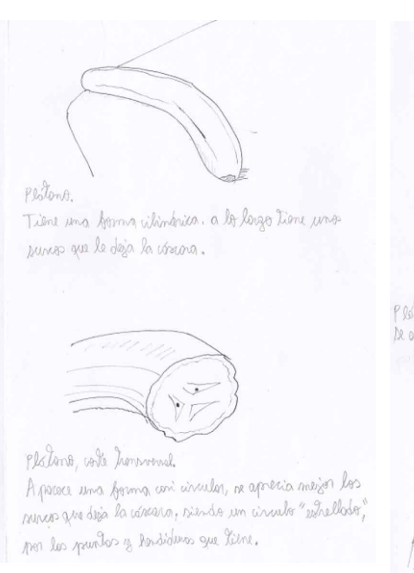 Plátano.
Tiene una forma cilíndrica. a lo largo tiene unos
surcos que le deja la cáscara.
Plátano, corte transversal.
Aparece una forma casi circular, se aprecia mejor los
surcos que deja la cáscara, siendo un circulo "estrellado",
por los puntos y hendiduras que tiene.
Plá
Se a